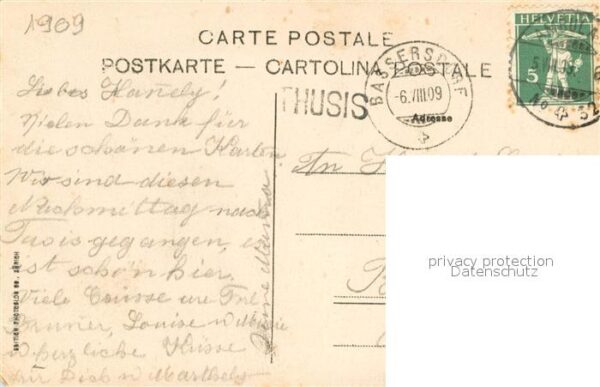 1909
CARTE POSTALE
POSTKARTE — CARTOLINA POSTALE
HELVETIA
5
THUSIS
BASSERSDORF
-6.VIII.09
Adresse
Liebes Hanely!
Vielen Dank für
die schönen Karten.
Wir sind diesen
Nachmittag nach
Tusis gegangen, es
ist schön hier.
Viele Grüsse
Louise
herzliche Küsse
für Dich u Marthely
Deine
An
privacy protection
Datenschutz